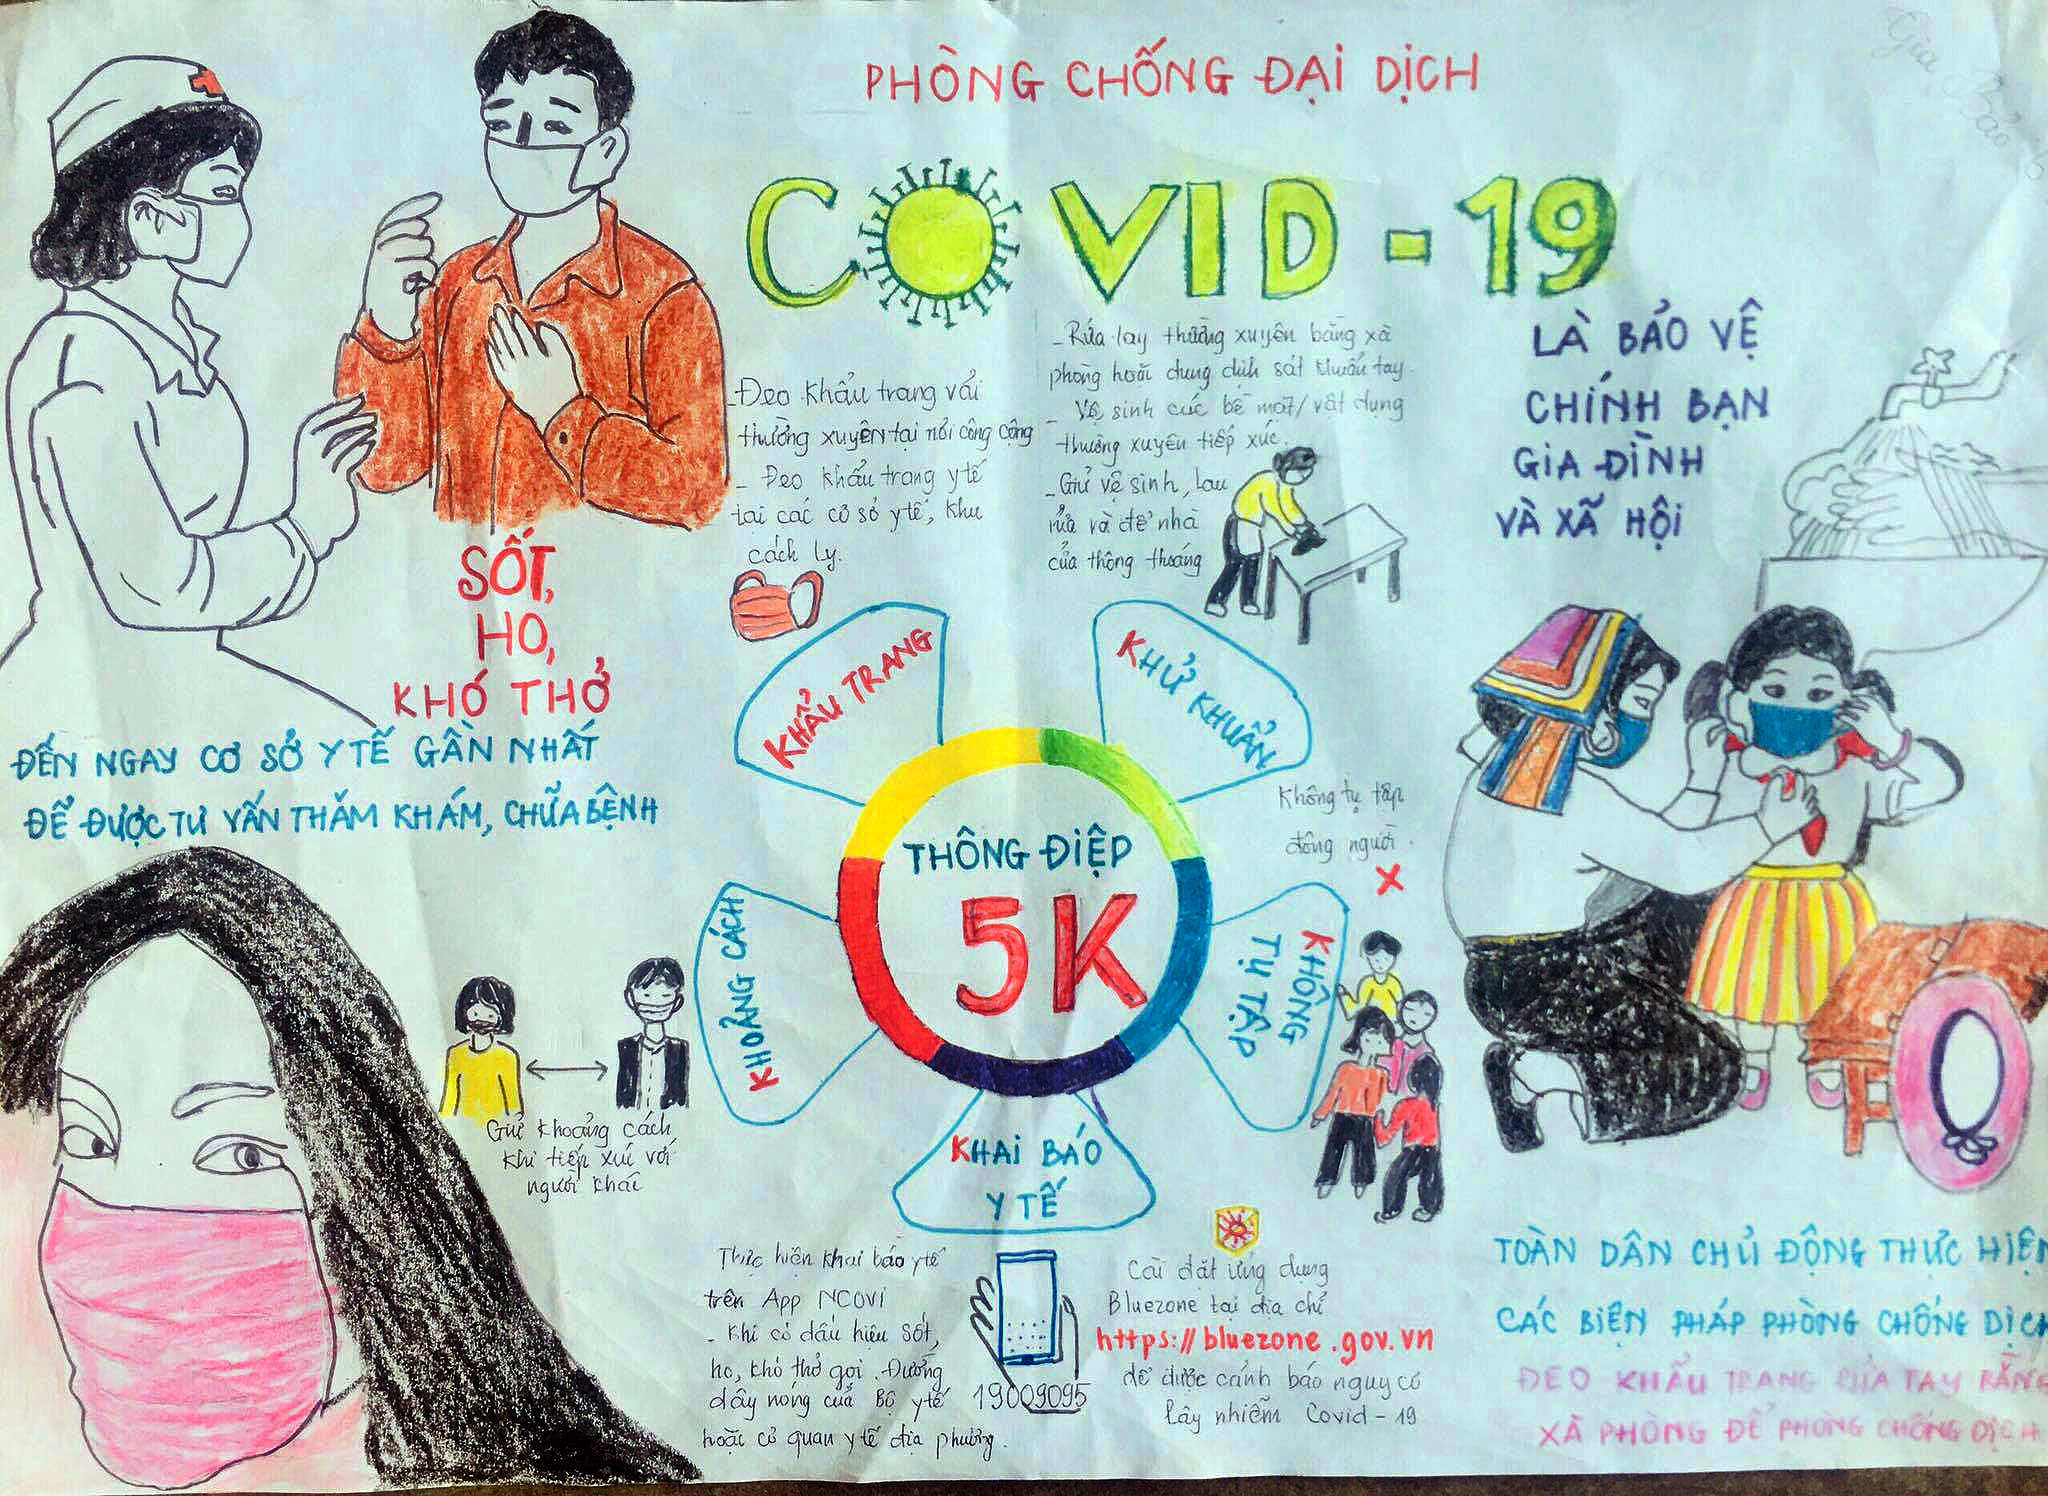 Gia Bảo
PHÒNG CHỐNG ĐẠI DỊCH
COVID-19
LÀ BẢO VỆ
CHÍNH BẠN
GIA ĐÌNH
VÀ XÃ HỘI
- Đeo khẩu trang vải
thường xuyên tại nơi công cộng
- Đeo khẩu trang y tế
tại các cơ sở y tế, khu
cách ly.
- Rửa tay thường xuyên bằng xà
phòng hoặc dung dịch sát khuẩn tay.
- Vệ sinh các bề mặt/vật dụng
thường xuyên tiếp xúc.
- Giữ vệ sinh, lau
rửa và để nhà
cửa thông thoáng
SỐT,
HO,
KHÓ THỞ
ĐẾN NGAY CƠ SỞ Y TẾ GẦN NHẤT
ĐỂ ĐƯỢC TƯ VẤN THĂM KHÁM, CHỮA BỆNH
KHẨU TRANG
KHỬ KHUẨN
THÔNG ĐIỆP
5K
KHOẢNG CÁCH
KHÔNG
TỤ TẬP
KHAI BÁO
Y TẾ
Không tụ tập
đông người.
Giữ khoảng cách
khi tiếp xúc với
người khác
Thực hiện khai báo y tế
trên App NCOVI
- Khi có dấu hiệu sốt,
ho, khó thở gọi. Đường
dây nóng của Bộ y tế 19009095
hoặc cơ quan y tế địa phương.
Cài đặt ứng dụng
Bluezone tại địa chỉ
https://bluezone.gov.vn
để được cảnh báo nguy cơ
lây nhiễm Covid-19
TOÀN DÂN CHỦ ĐỘNG THỰC HIỆN
CÁC BIỆN PHÁP PHÒNG CHỐNG DỊCH
ĐEO KHẨU TRANG RỬA TAY BẰNG
XÀ PHÒNG ĐỂ PHÒNG CHỐNG DỊCH